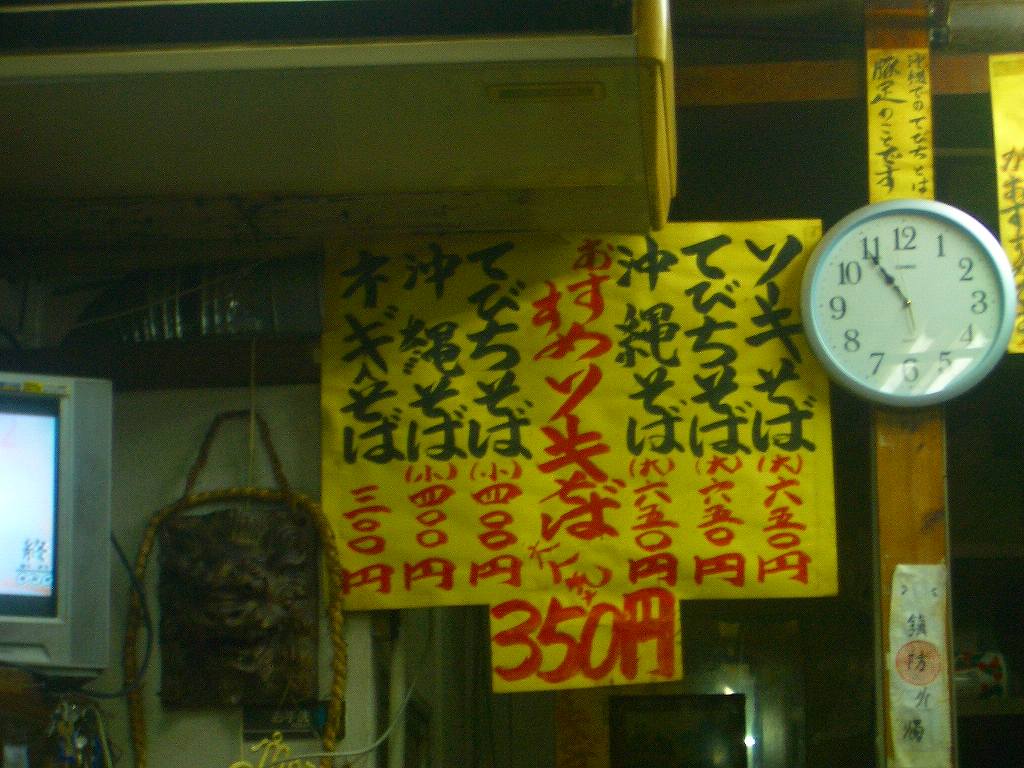 沖縄でのてびちとは
豚足のことです
ソーキそば(大)六五〇円
てびちそば(大)六五〇円
沖縄そば(大)六五〇円
おすすめソーキそば
350円
てびちそば(小)四〇〇円
沖縄そば(小)四〇〇円
ネギそば三〇〇円
12
1
2
3
4
5
6
7
8
9
10
11
終